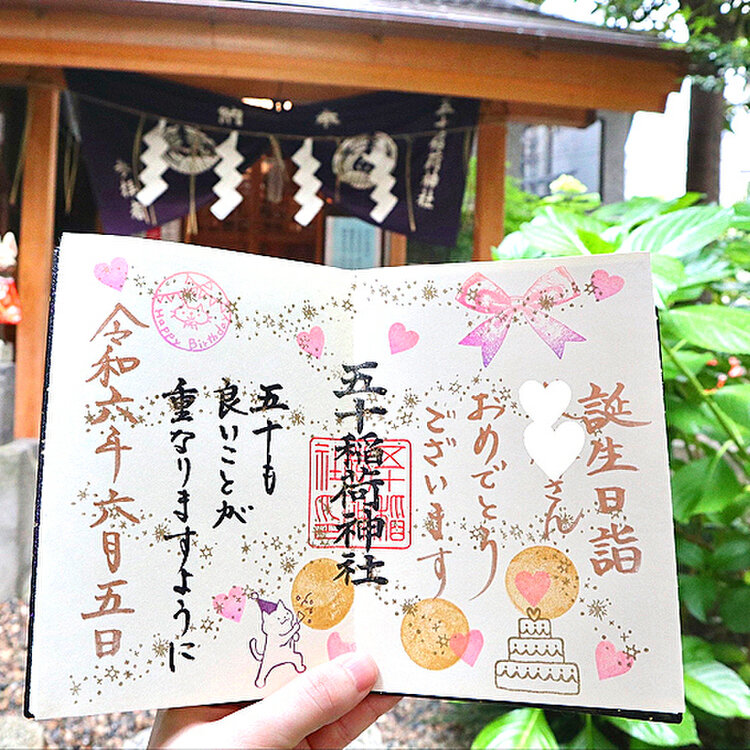 奉
納
五十稲荷神社
誕生日詣
さん
おめでとう
ございます
五十稲荷神社
五十稲
五十も
良いことが
重なりますように
令和六年六月五日
Happy Birthday